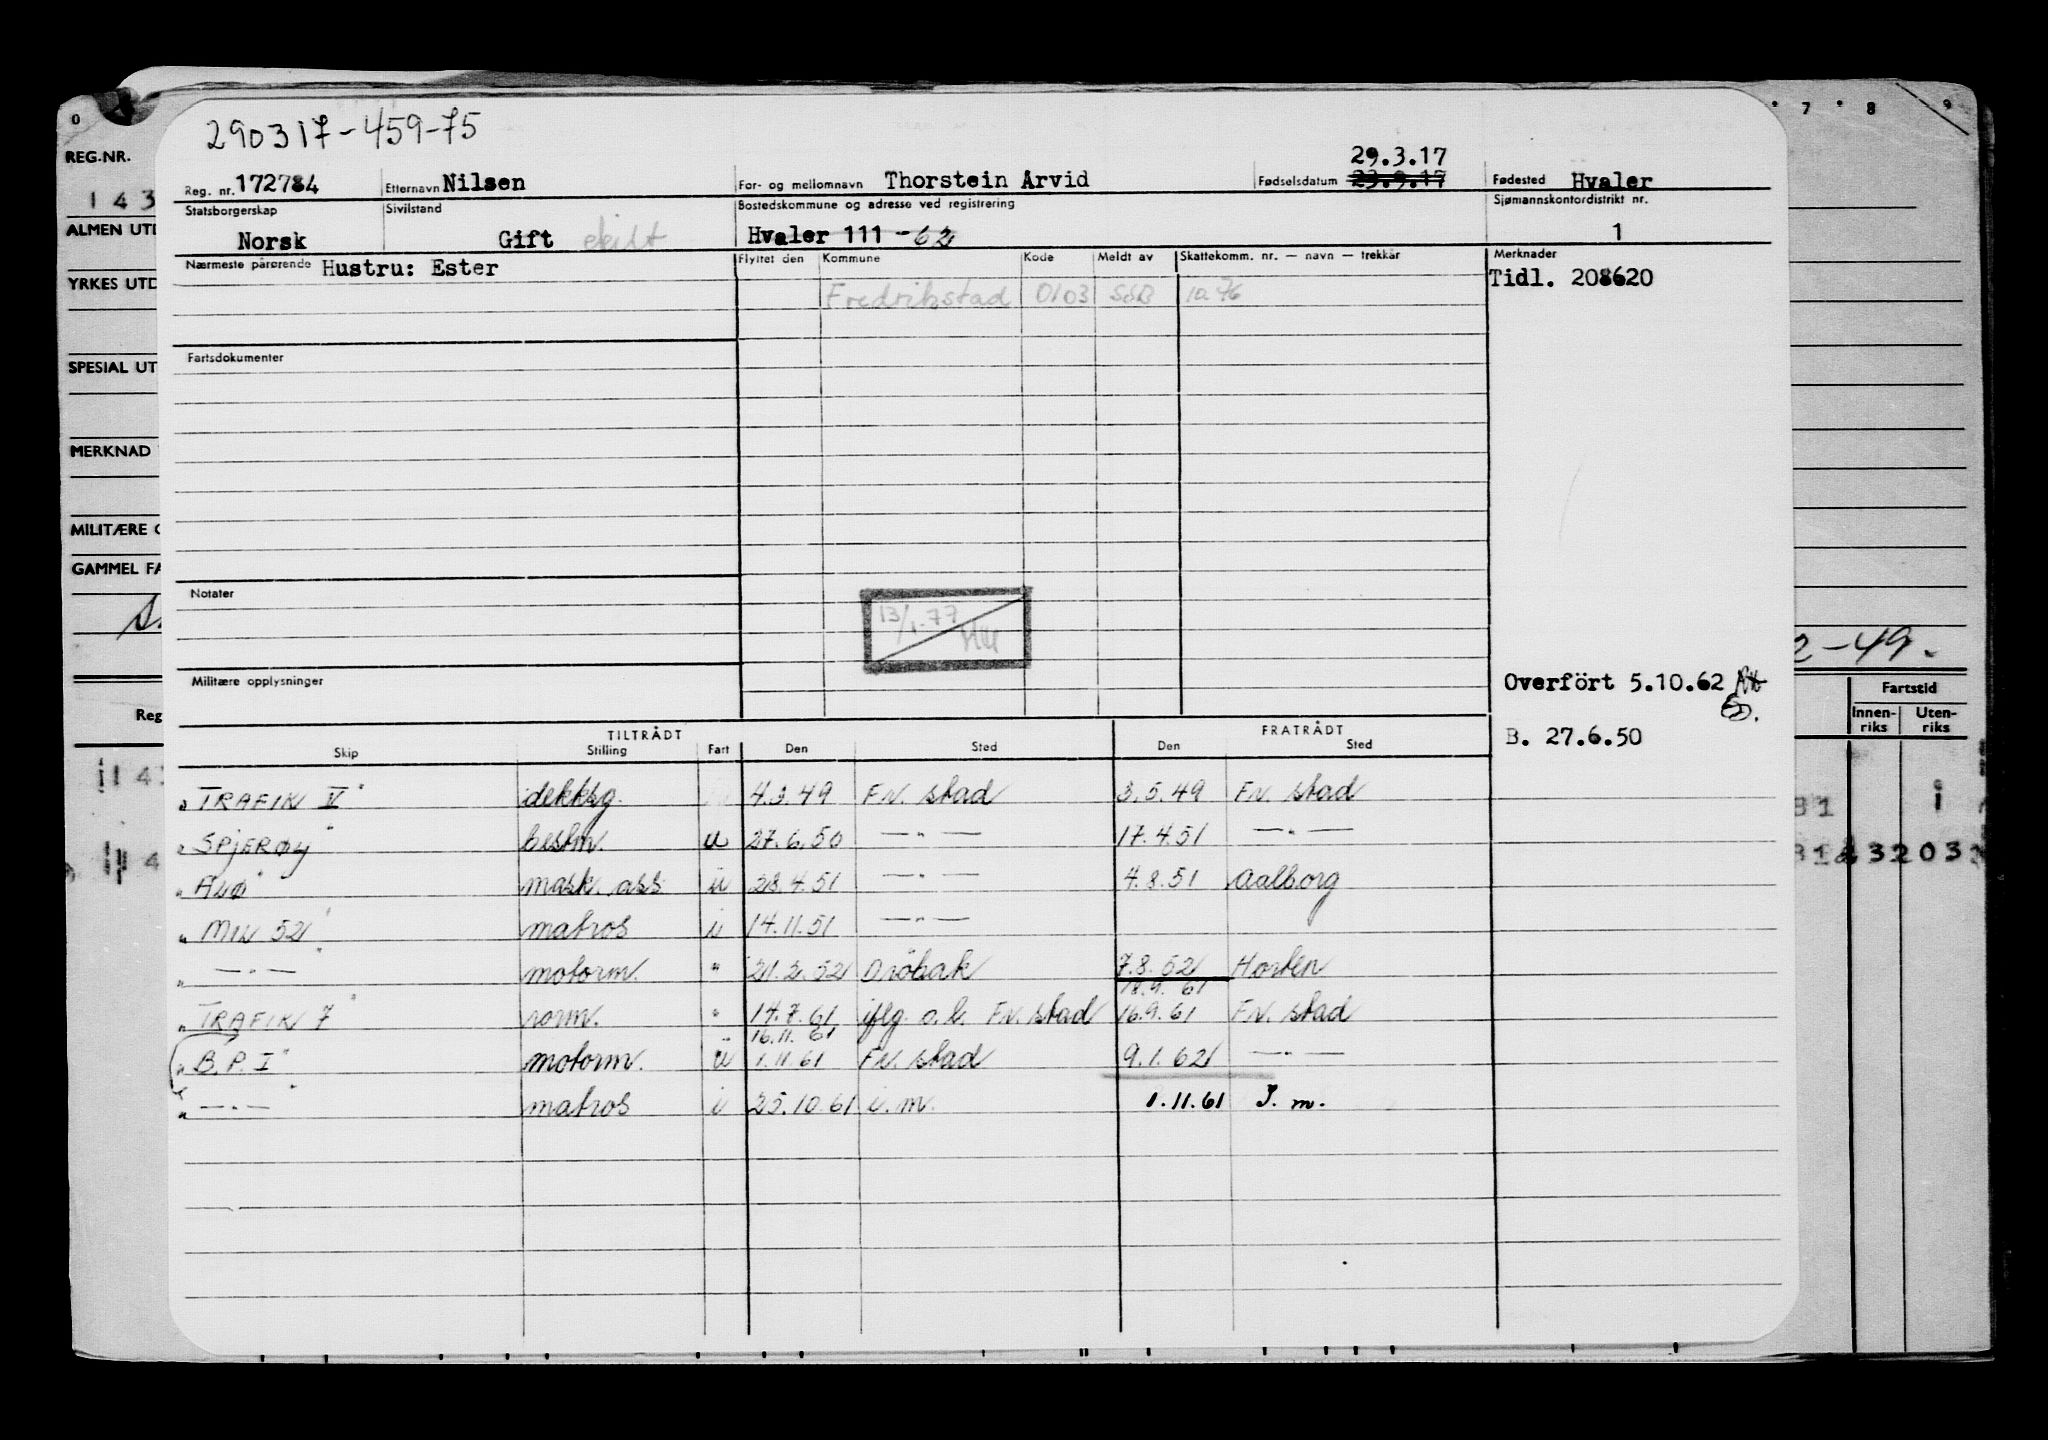 0 7 8 9
290317-459-75
REG.NR.
143
Reg. nr. 172784 Etternavn Nilsen For- og mellomnavn Thorstein Arvid Fødselsdatum 29.3.17 23.9.17 Fødested Hvaler
Statsborgerskap Sivilstand Bostedskommune og adresse ved registrering Sjømannskontordistrikt nr.
ALMEN UTD
Norsk Gift skilt Hvaler 111 -62 1
Nærmeste pårørende Hustru: Ester Flyttet den Kommune Kode Meldt av Skattekomm. nr. — navn — trekkår Merknader
YRKES UTD
Fredrikstad 0103 SSB 10.76 Tidl. 208620
SPESIAL UT
Fartsdokumenter
MERKNAD
MILITÆRE O
GAMMEL FA
Notater
13/1-77
2-49.
Militære opplysninger Overfört 5.10.62
Fartstid
Reg Innen-riks Uten-riks
TILTRÅDT FRATRÅDT B. 27.6.50
Skip Stilling Fart Den Sted Den Sted
"TRAFIK V" dekksg. 4.3.49 Fr. stad 3.5.49 Fr. stad
"SPJERØY" bestm. u 27.6.50 —"— 17.4.51 —"—
"ALØ" mask. ass. u 28.4.51 —"— 4.8.51 Aalborg
"MIN 52" matros i 14.11.51 —"—
" —"— " motorm. " 21.2.52 Dröbak 7.8.52 Horten
18.9.61
"TRAFIK 7" rorm. " 14.7.61 iflg. o.b. Fr. stad 16.9.61 Fr. stad
16.11.61
"B.P.I" motorm. u 1.11.61 Fr. stad 9.1.62 —"—
" —"— " matros i 25.10.61 i.m. 1.11.61 I.m.